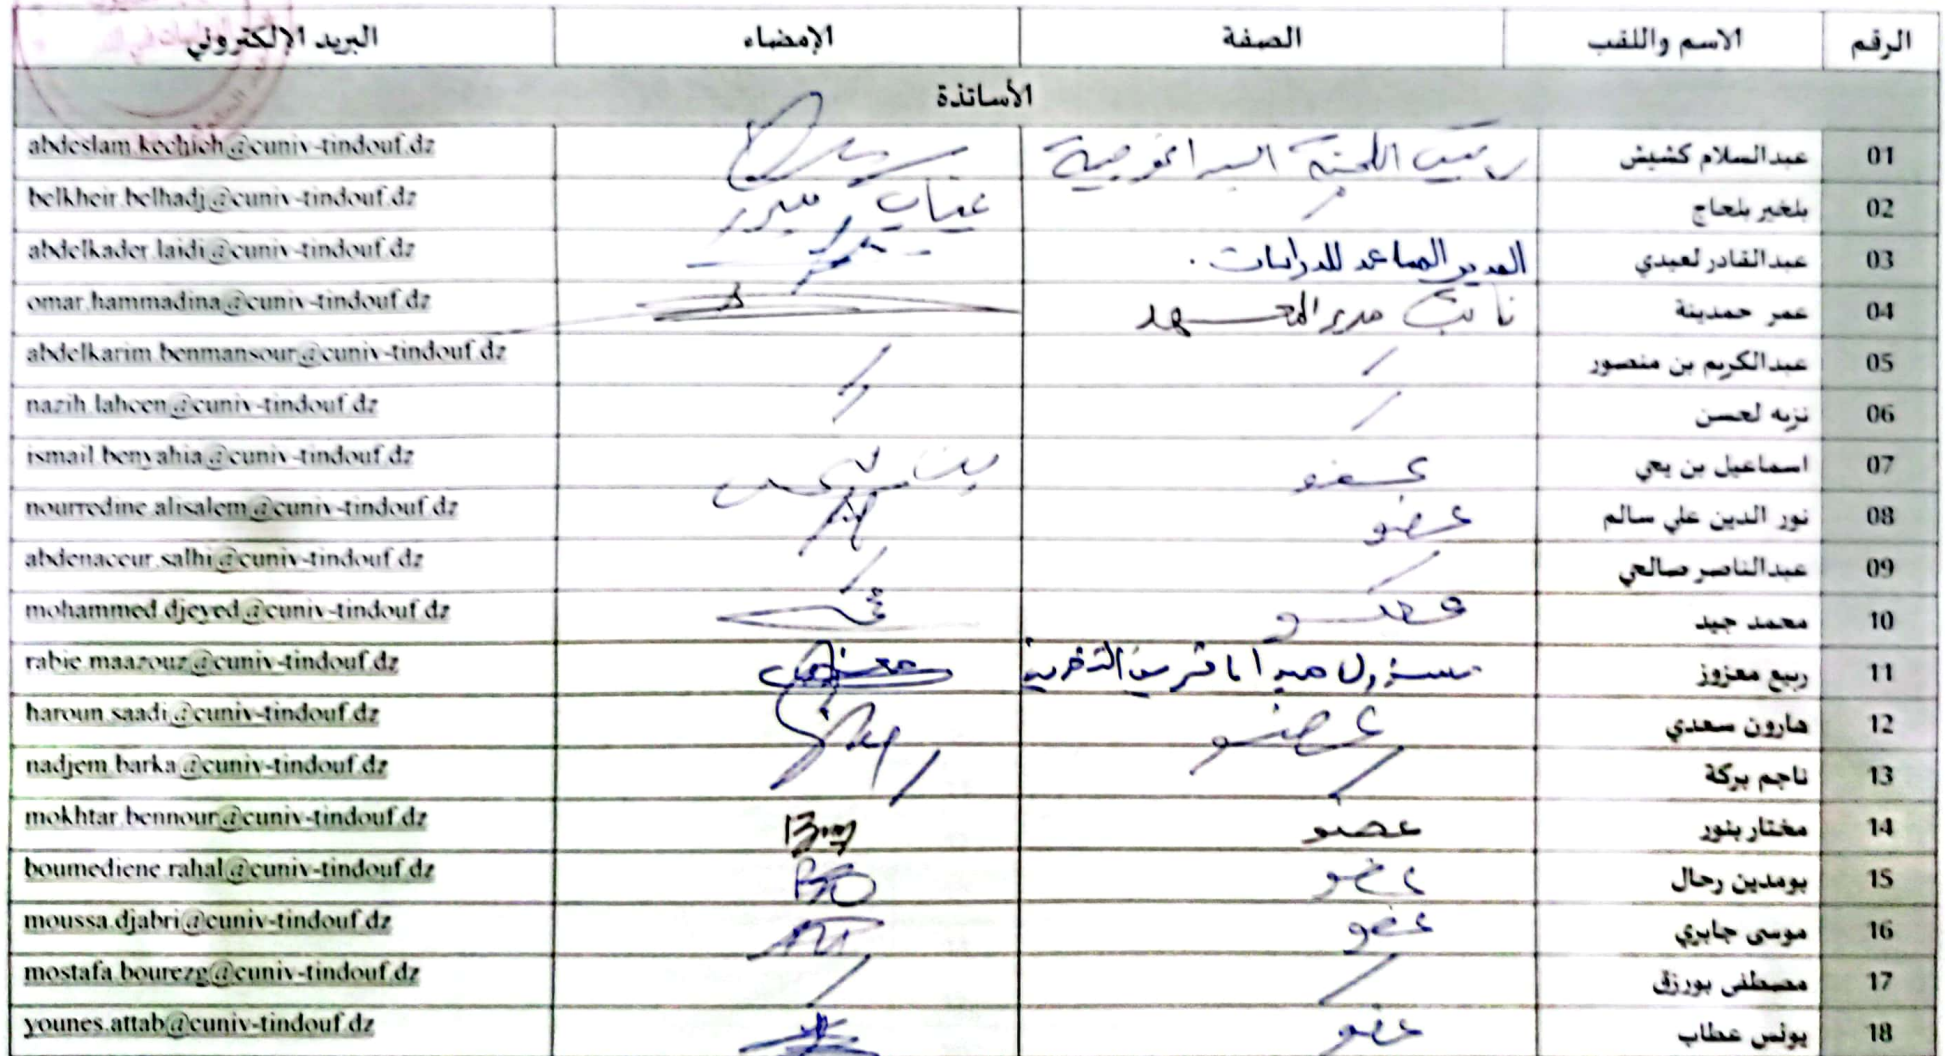 الرقم الاسم واللقب الصفة الإمضاء البريد الإلكتروني
الأساتذة
01 عبدالسلام كشيش رئيس اللجنة البيداغوجية abdeslam.kechich@cuniv-tindouf.dz
02 بلخير بلحاج / غياب مبرر belkheir.belhadj@cuniv-tindouf.dz
03 عبدالقادر لعيدي المدير المساعد للدراسات. abdelkader.laidi@cuniv-tindouf.dz
04 عمر حمدينة نائب مدير المعهد omar.hammadina@cuniv-tindouf.dz
05 عبدالكريم بن منصور / / abdelkarim.benmansour@cuniv-tindouf.dz
06 نزيه لحسن / / nazih.lahcen@cuniv-tindouf.dz
07 اسماعيل بن يحي عضو ismail.benyahia@cuniv-tindouf.dz
08 نور الدين علي سالم عضو nourredine.alisalem@cuniv-tindouf.dz
09 عبدالناصر صالحي / / abdenaceur.salhi@cuniv-tindouf.dz
10 محمد جيد عضو mohammed.djeyed@cuniv-tindouf.dz
11 ربيع معزوز مسؤول rabie.maazouz@cuniv-tindouf.dz
12 هارون سعدي عضو haroun.saadi@cuniv-tindouf.dz
13 ناجم بركة / / nadjem.barka@cuniv-tindouf.dz
14 مختار بنور عضو mokhtar.bennour@cuniv-tindouf.dz
15 بومدين رحال عضو boumediene.rahal@cuniv-tindouf.dz
16 موسى جابري عضو moussa.djabri@cuniv-tindouf.dz
17 مصطفى بورزق / / mostafa.bourezg@cuniv-tindouf.dz
18 يونس عطاب عضو younes.attab@cuniv-tindouf.dz